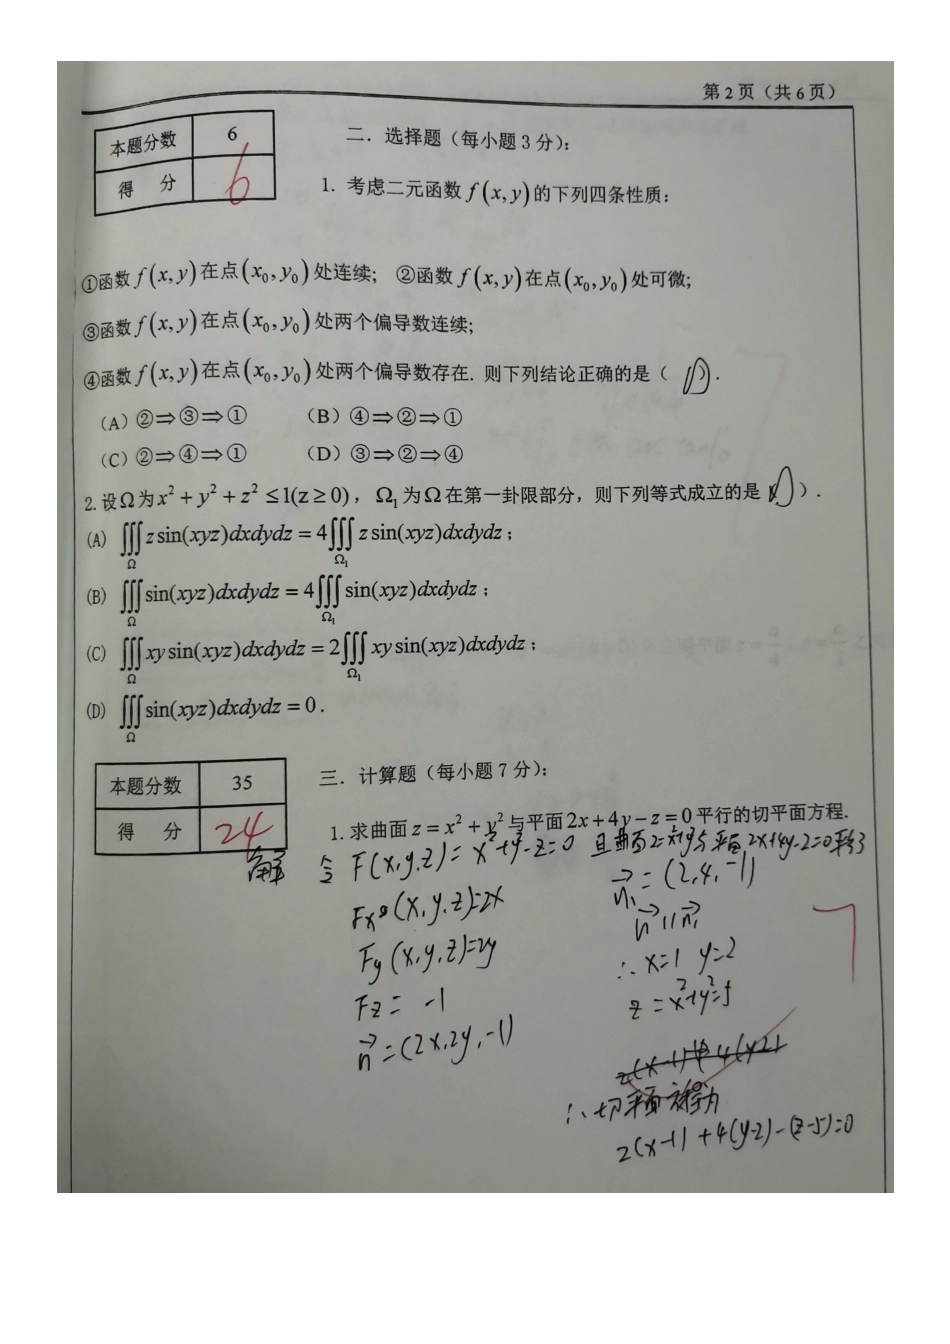 第 2 页（共 6 页）
本题分数 6
得 分 6
二．选择题（每小题 3 分）：
1. 考虑二元函数 f(x,y) 的下列四条性质：
①函数 f(x,y) 在点 (x₀,y₀) 处连续; ②函数 f(x,y) 在点 (x₀,y₀) 处可微;
③函数 f(x,y) 在点 (x₀,y₀) 处两个偏导数连续;
④函数 f(x,y) 在点 (x₀,y₀) 处两个偏导数存在. 则下列结论正确的是（ D ）.
（A）②⇒③⇒① （B）④⇒②⇒①
（C）②⇒④⇒① （D）③⇒②⇒④
2. 设Ω为x²+y²+z²≤1(z≥0)，Ω₁为Ω在第一卦限部分，则下列等式成立的是（ D ）.
(A) ∭_Ω z sin(xyz)dxdydz = 4∭_Ω₁ z sin(xyz)dxdydz ;
(B) ∭_Ω sin(xyz)dxdydz = 4∭_Ω₁ sin(xyz)dxdydz ;
(C) ∭_Ω xy sin(xyz)dxdydz = 2∭_Ω₁ xy sin(xyz)dxdydz ;
(D) ∭_Ω sin(xyz)dxdydz = 0 .
本题分数 35
得 分 24
三．计算题（每小题 7 分）：
1. 求曲面 z = x² + y² 与平面 2x + 4y − z = 0 平行的切平面方程.
解 令 F(x,y,z)= x²+y²-z=0 且曲面z=x²+y²与平面2x+4y-z=0平行
Fx (x,y,z)=2x
Fy (x,y,z)=2y
Fz = -1
n⃗ =(2x,2y,-1)
n⃗₁ = (2,4,-1)
n⃗ // n⃗₁
∴ x=1 y=2
z = x²+y²=5
7
∴ 切平面方程为
2(x-1)+4(y-2)-(z-5)=0